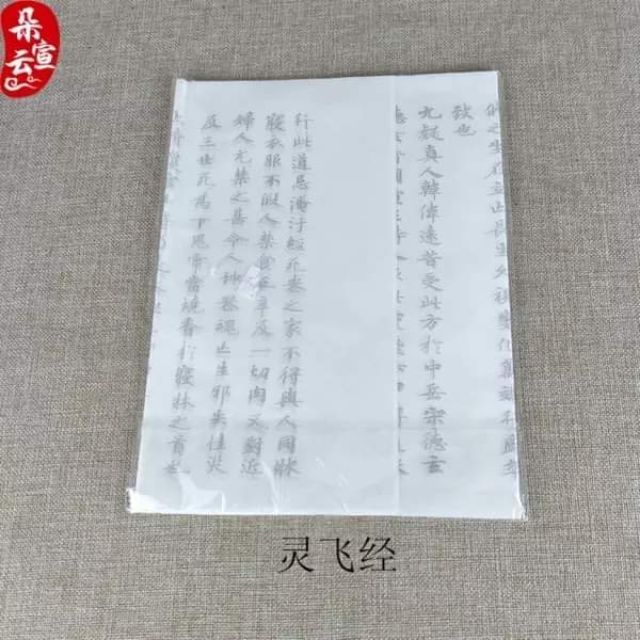 朵云宣
致也
九疑真人韓偉遠昔受此方於中岳宋德玄
行此道忌淹汙經死喪之家不得與人同牀
寢衣服不假人禁食五辛及一切肉又對近
婦人尤禁之甚令人神喪魂亡生邪失性災
及三世死為下鬼常當燒香於寢牀之首也
灵飞经